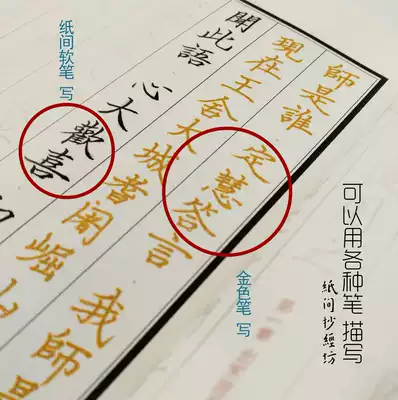 師是誰 定慧答言 我師是
現在王舍大城耆闍崛山
聞此語 心大歡喜
纸间软笔 写
金色笔 写
可以用各种笔 描写
紙间抄經坊